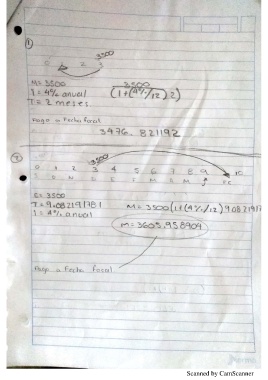 ①
3500
0 2 3
M= 3500
i = 4% anual
T = 2 meses
3500
(1+(4%/12).2)
Pago a Fecha focal
3476.821192
②
3500
0 1 2 3 4 5 6 7 8 9 10
C= 3500
T= 9.082191781
i = 4% anual
M= 3500(1+(4%/12)9.0821917
M= 3605.958904
Pago a Fecha focal
Scanned by CamScanner